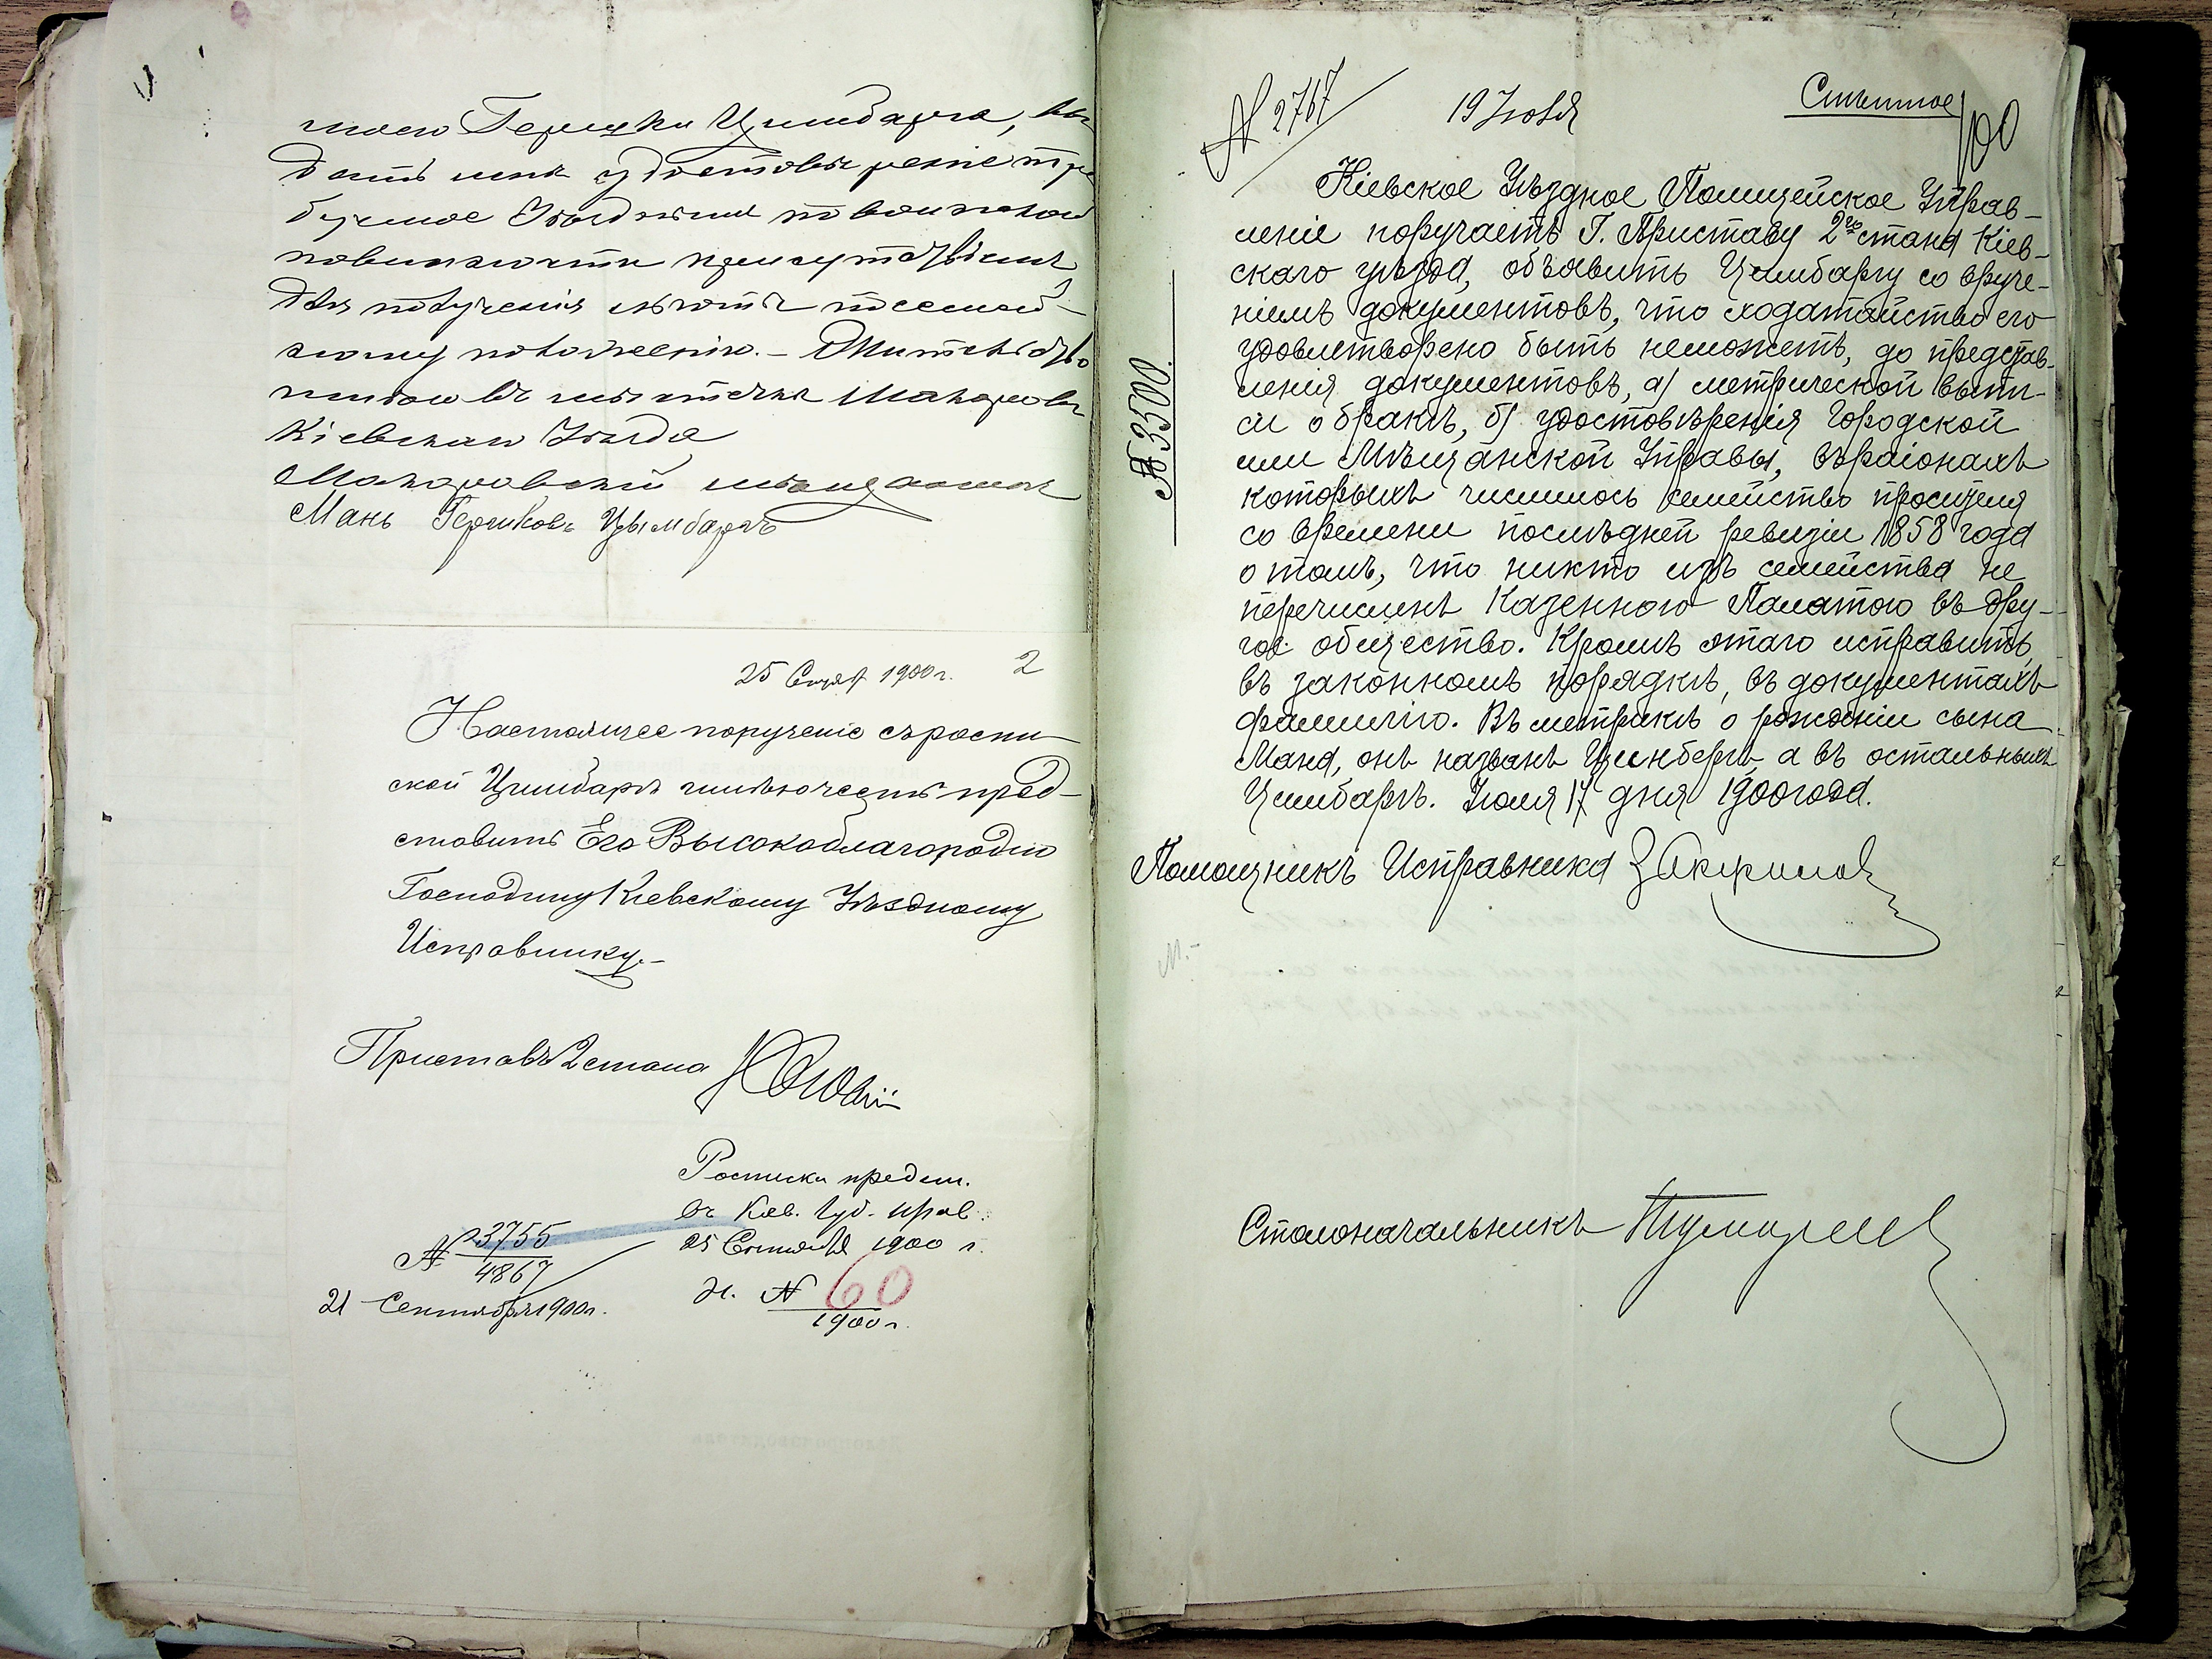 моего Гершки Цимбарга, вы-
дать мнѣ удостовѣреніе тре
буемое Уѣзднымъ по воинской
повинности присутствіемъ
для полученія льготы по семей-
ному положенію. - Жительство
имѣю въ мѣстечкѣ Макаровѣ
Кіевскаго Уѣзда
Макаровскій мѣщанинъ
Мань Гершковъ Цымбаргъ
25 Сентяб 1900 г. 2
Настоящее порученіе съ роспи-
ской Цимбаргъ имѣю честь пред-
ставить Его Высокоблагородію
Господину Кіевскому Уѣздному
Исправнику.-
Приставъ 2 стана
Росписка предст.
въ Кіев. Губ. Прав.
25 Сентября 1900 г.
№ 3755
4867
21 Сентября 1900 г.
№ 60
1900 г.
№ 2767 19 Іюля 100
№ 3500.
Кіевское Уѣздное Полицейское Управ-
леніе поручаетъ Г. Приставу 2го стана Кіев-
скаго уѣзда, объявить Цимбаргу со вруче-
ніемъ документовъ, что ходатайство его
удовлетворено быть неможетъ, до представ-
ленія документовъ, а) метрической выпи-
си о бракѣ, б) удостовѣренія Городской
или Мѣщанской Управы, въ раіонахъ
которыхъ числилось семейство просителя
со времени послѣдней ревизіи 1858 года
о томъ, что никто изъ семейства не
перечисленъ Казенною Палатою въ дру-
гое общество. Кромѣ этаго исправить
въ законномъ порядкѣ, въ документахъ
фамилію. Въ метрикѣ о рожденіи сына
Маня, онъ названъ Цинбергъ, а въ остальныхъ
Цимбаргъ. Іюля 17 дня 1900 года.
Помощникъ Исправника
Столоначальникъ